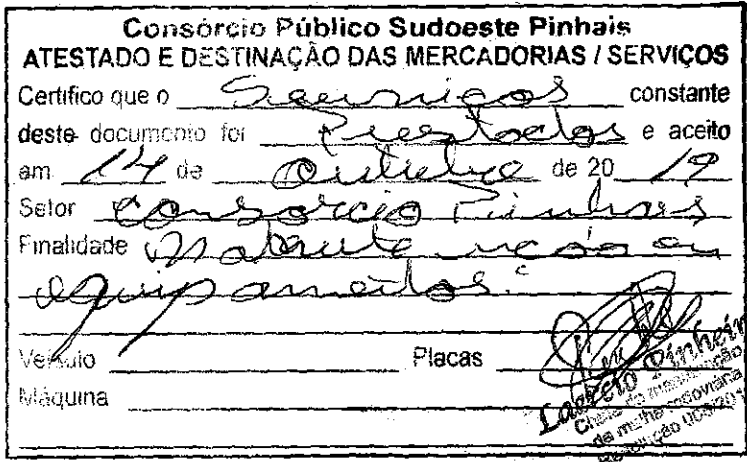 Consórcio Público Sudoeste Pinhais
ATESTADO E DESTINAÇÃO DAS MERCADORIAS / SERVIÇOS
Certifico que o Serviços constante
deste documento foi Prestados e aceito
am 14 de Outubro de 20 19
Setor Consórcio Pinhais
Finalidade em
equipamentos.
Veículo Placas
Máquina
Laercio Pinheiro
Chefe de manutenção
da malha rodoviária
Resolução 003/201